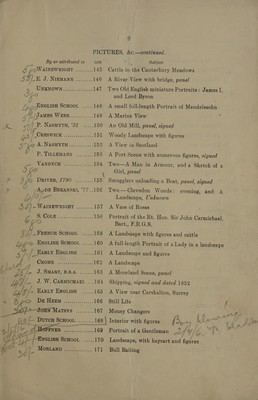 8
PICTURES, &c.—continued.
By or attributed to LOT Subject
WAINEWRIGHT 145 Cattle in the Canterbury Meadows
E. J. NIEMANN 146 A River View with bridge, panel
UNKNOWN 147 Two Old English miniature Portraits: James I.
and Lord Byron
ENGLISH SCHOOL 148 A small full-length Portrait of Mendelssohn
JAMES WEBB 149 A Marine View
P. NASMYTH, '22 150 An Old Mill, panel, signed
CRESWICK 151 Woody Landscape with figures
A. NASMYTH 152 A View in Scotland
P. TILLEMANS 153 A Port Scene with numerous figures, signed
VANDYCK 154 Two—A Man in Armour, and a Sketch of a
Girl, panel
DRIVER, 1790 155 Smugglers unloading a Boat, panel, signed
A. DE BREANSKI, '77 156 Two—Clovedon Woods: evening, and A
Landscape, Unknown
WAINEWRIGHT 157 A Vase of Roses
S. COLE 158 Portrait of the Rt. Hon. Sir John Carmichael,
Bart., F.R.G.S.
FRENCH SCHOOL 159 A Landscape with figures and cattle
ENGLISH SCHOOL 160 A full-length Portrait of a Lady in a landscape
EARLY ENGLISH 161 A Landscape and figures
CROME 162 A Landscape
J. SMART, R.S.A. 163 A Moorland Scene, panel
J. W. CARMICHAEL 164 Shipping, signed and dated 1852
EARLY ENGLISH 165 A View near Carshalton, Surrey
DE HEEM 166 Still Life
JOHN MATSYS 167 Money Changers
DUTCH SCHOOL 168 Interior with figures
HOPPNER 169 Portrait of a Gentleman
ENGLISH SCHOOL 170 Landscape, with haycart and figures
MORLAND 171 Bull Baiting